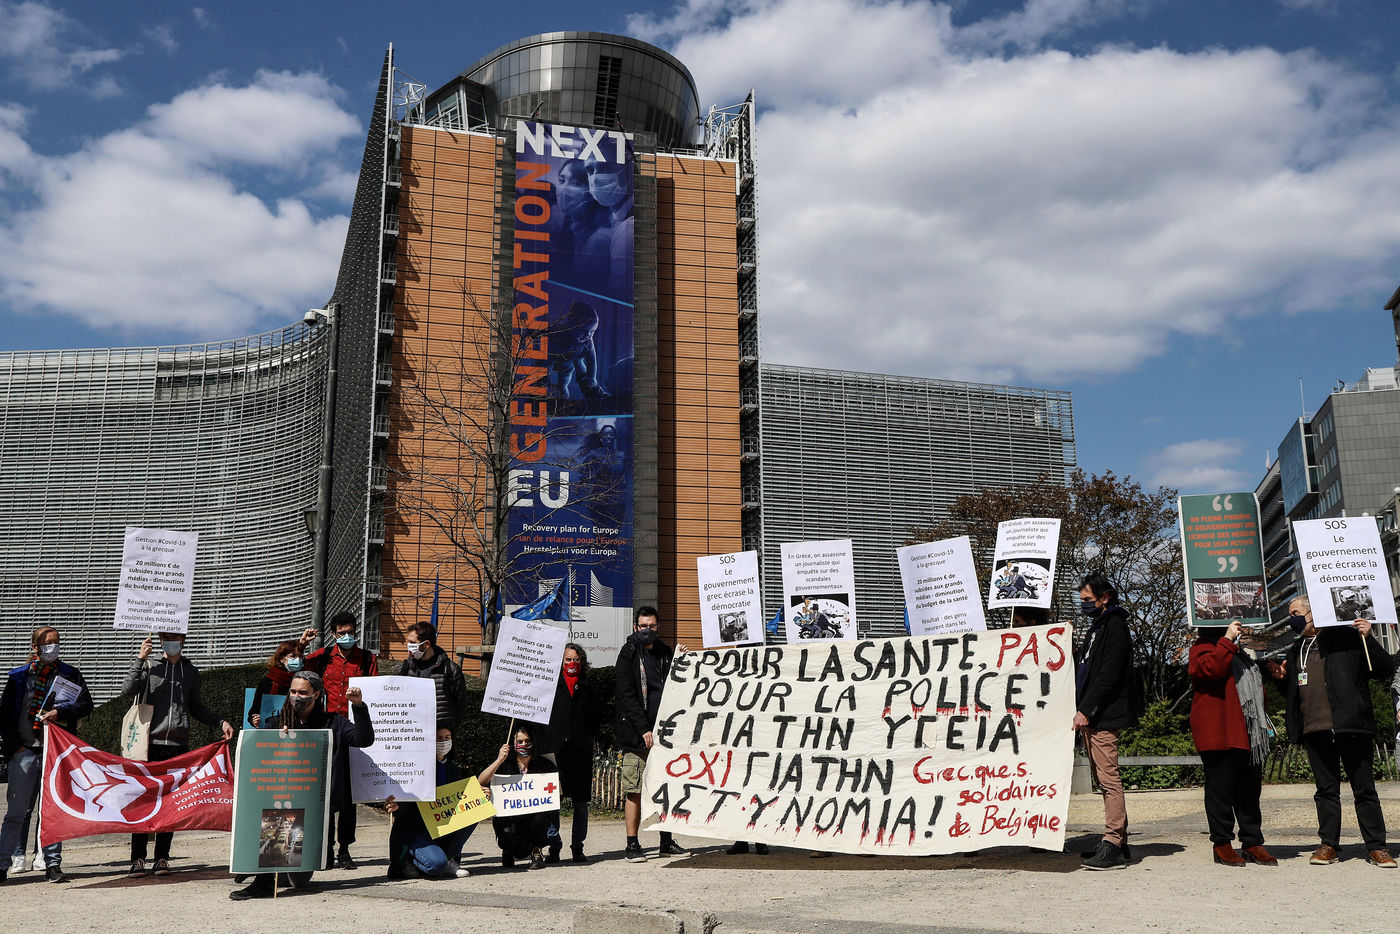 NEXT
GENERATION
EU
Recovery plan for Europe
Plan de relance pour l'Europe
Herstelplan voor Europa
Gestion #Covid-19
à la grecque :
20 millions € de
subsides aux grands
médias - diminution
du budget de la santé
Résultat : des gens
meurent dans les
couloirs des hôpitaux
et personne n'en parle
Grèce :
Plusieurs cas de
torture de
manifestant.es –
opposant.es dans les
commissariats et dans
la rue
Combien d'Etat-
membres policiers l'UE
peut tolérer ?
Grèce :
Plusieurs cas de
torture de
manifestant.es –
opposant.es dans les
commissariats et dans
la rue
Combien d'Etat-
membres policiers l'UE
peut tolérer ?
SOS
Le
gouvernement
grec écrase la
démocratie
En Grèce, on assassine
un journaliste qui
enquête sur des
scandales
gouvernementaux
Gestion #Covid-19
à la grecque :
20 millions € de
subsides aux grands
médias - diminution
du budget de la santé
Résultat : des gens
meurent dans les
couloirs des hôpitaux
En Grèce, on assassine
un journaliste qui
enquête sur des
scandales
gouvernementaux
“
EN PLEINE PANDÉMIE,
LE GOUVERNEMENT GREC
LICENCIE DES MÉDECINS
POUR LEUR ACTIVITÉ
SYNDICALE !
”
SOS
Le
gouvernement
grec écrase la
démocratie
marxiste.be
vonk.org
marxist.com
GESTION COVID-19 À LA
GRECQUE:
AUGMENTATION DU
BUDGET POUR L'ARMÉE ET
LA POLICE VS. DIMINUTION
DU BUDGET POUR LA
SANTÉ !
LIBERTÉS
DÉMOCRATIQUES
SANTÉ +
PUBLIQUE
€ POUR LA SANTE, PAS
POUR LA POLICE!
€ ΓΙΑ ΤΗΝ ΥΓΕΙΑ
ΟΧΙ ΓΙΑ ΤΗΝ
ΑΣΤΥΝΟΜΙΑ!
Grec.que.s.
solidaires
de Belgique